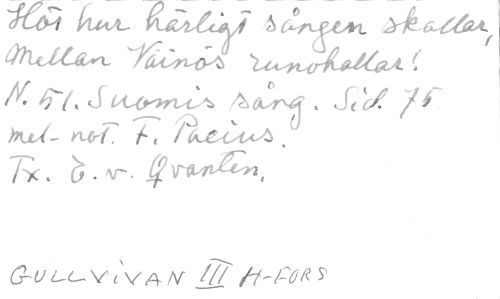 Hör hur härligt sången skallar,
Mellan Väinös runohallar!
N. 51. Suomis sång. Sid. 75
mel-not. F. Pacius.
Tx. E. v. Qvanten.
GULLVIVAN III H-FORS